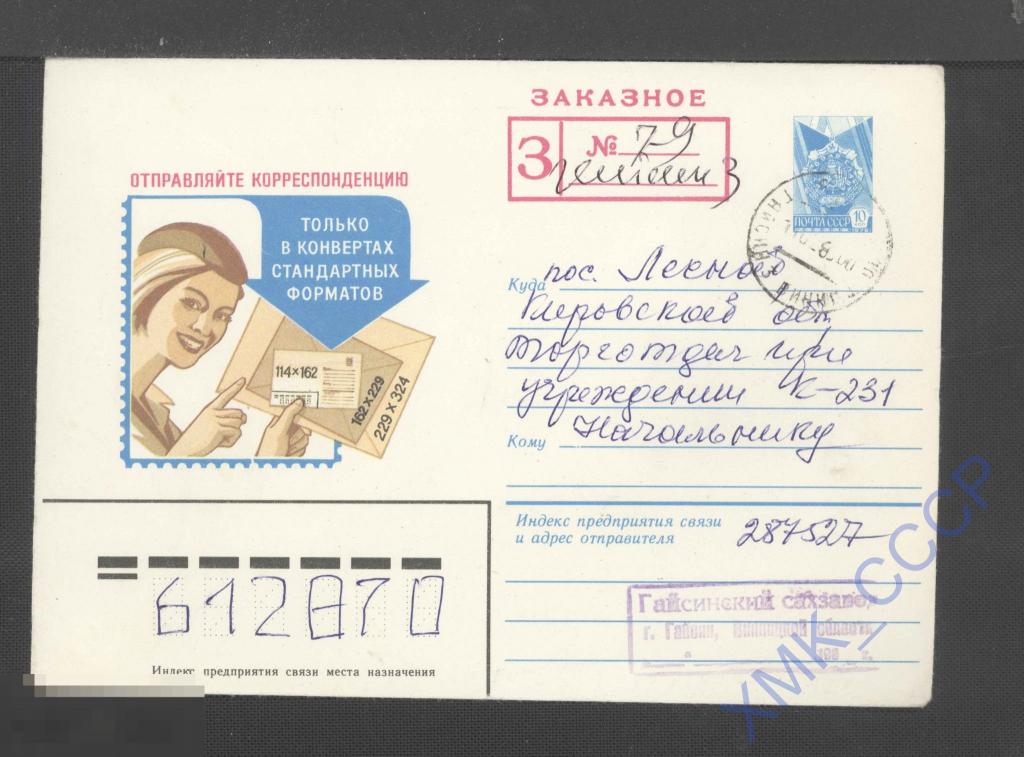 ЗАКАЗНОЕ
З № 79
Гайсин 3
ПОЧТА СССР 10 коп
ОТПРАВЛЯЙТЕ КОРРЕСПОНДЕНЦИЮ
ТОЛЬКО
В КОНВЕРТАХ
СТАНДАРТНЫХ
ФОРМАТОВ
114×162
162×229
229×324
Куда пос. Лесной
Кировской обл
торготдел при
учреждении К-231
Кому Начальнику
Индекс предприятия связи
и адрес отправителя
287527
Гайсинский сахзавод
г. Гайсин, Винницкой области
198 г.
612870
Индекс предприятия связи места назначения
ХМК_СССР